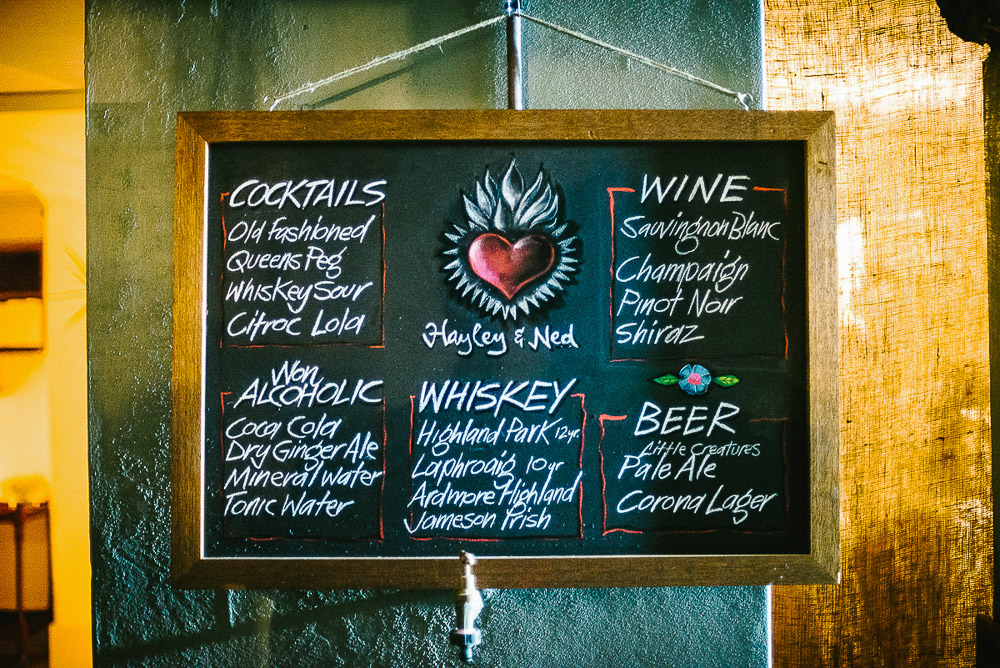 COCKTAILS
Old Fashioned
Queens Peg
Whiskey Sour
Citroc Lola
Hayley & Ned
WINE
Sauvingnon Blanc
Champaign
Pinot Noir
Shiraz
Non
ALCOHOLIC
Coca Cola
Dry Ginger Ale
Mineral Water
Tonic Water
WHISKEY
Highland Park 12yr.
Laphroaig 10yr
Ardmore Highland
Jameson Irish
BEER
Little Creatures
Pale Ale
Corona Lager